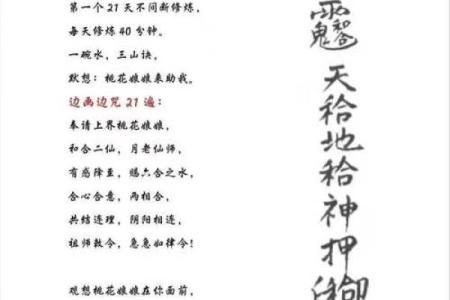 第一个21天不间断修炼，
每天修炼40分钟。
一碗水，三山诀，
默想：桃花娘娘来助我。
边画边咒21遍：
奉请上界桃花娘娘，
和合二仙，月老仙师，
有感降至，赐六合之水，
合心合意，两相合，
共结连理，阴阳相连，
祖师敕令，急急如律令！
观想桃花娘娘在你面前，
天
地
神
押